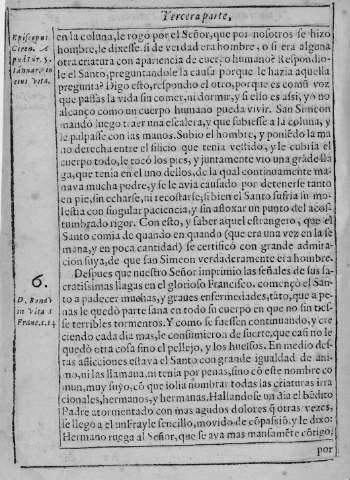 Tercera parte,
Episcopus
Ciren.
5.
Ianuar.
eius vita.
en la coluna, le rogò por el Señor, que por nosotros se hizo
hombre, le dixesse, si de verdad era hombre, o si era alguna
otra criatura con apariencia de cuerpo humano? Respondio-
le el Santo, preguntandole la causa porque le hazia aquella
pregunta? Digo esto, respondio el otro, porque es comũ voz
que passas la vida sin comer, ni dormir, y si ello es assi, yo no
alcanço como un cuerpo humano pueda vivir. San Simeon
mandò luego traer una escalera, y que subiesse a la coluna, y
le palpasse con las manos. Subio el hombre, y poniẽdo la ma
no derecha entre el silicio que tenia vestido, y le cubria el
cuerpo todo, le tocò los pies, y juntamente vio una grãde lla-
ga, que tenia en el uno dellos, de la qual continuamente ma-
nava mucha podre, y se le avia causado por detenerse tanto
en pie, sin echarse, ni recostarse, si bien el Santo sufria su mo-
lestia con singular paciencia, y sin afloxar un punto del acos-
tumbrado rigor. Con esto, y saber aquel estrangero, que el
Santo comia de quando en quando (que era una vez en la se
mana, y en poca cantidad) se certificò con grande admira-
cion suya, de que san Simeon verdaderamente era hombre.
6.
Despues que nuestro Señor imprimio las señales de sus sa-
cratissimas llagas en el glorioso Francisco, començò el San-
D. Bonav.
to a padecer muchas, y graves enfermedades, tãto, que a pe-
in vita S.
nas le quedò parte sana en todo su cuerpo en que no sinties-
Franc. c. 14
se terribles tormentos. Y como se fuessen continuando, y cre
ciendo cada dia mas, le consumieron de suerte, que casi no le
quedò otra cosa sino el pellejo, y los huessos. En medio des-
tas aflicciones estava el Santo con grande igualdad de ani-
mo, ni las llamava, ni tenia por penas, sino cõ este nombre co
mun, muy suyo, cõ que solia nombrar todas las criaturas irra
cionales, hermanos, y hermanas. Hallandose un dia el bẽdito
Padre atormentado con mas agudos dolores q̃ otras vezes,
se llegò a el un Frayle sencillo, movido de cõpassiõ, y le dixo:
Hermano ruega al Señor, que se aya mas mansamẽte cõtigo,
por